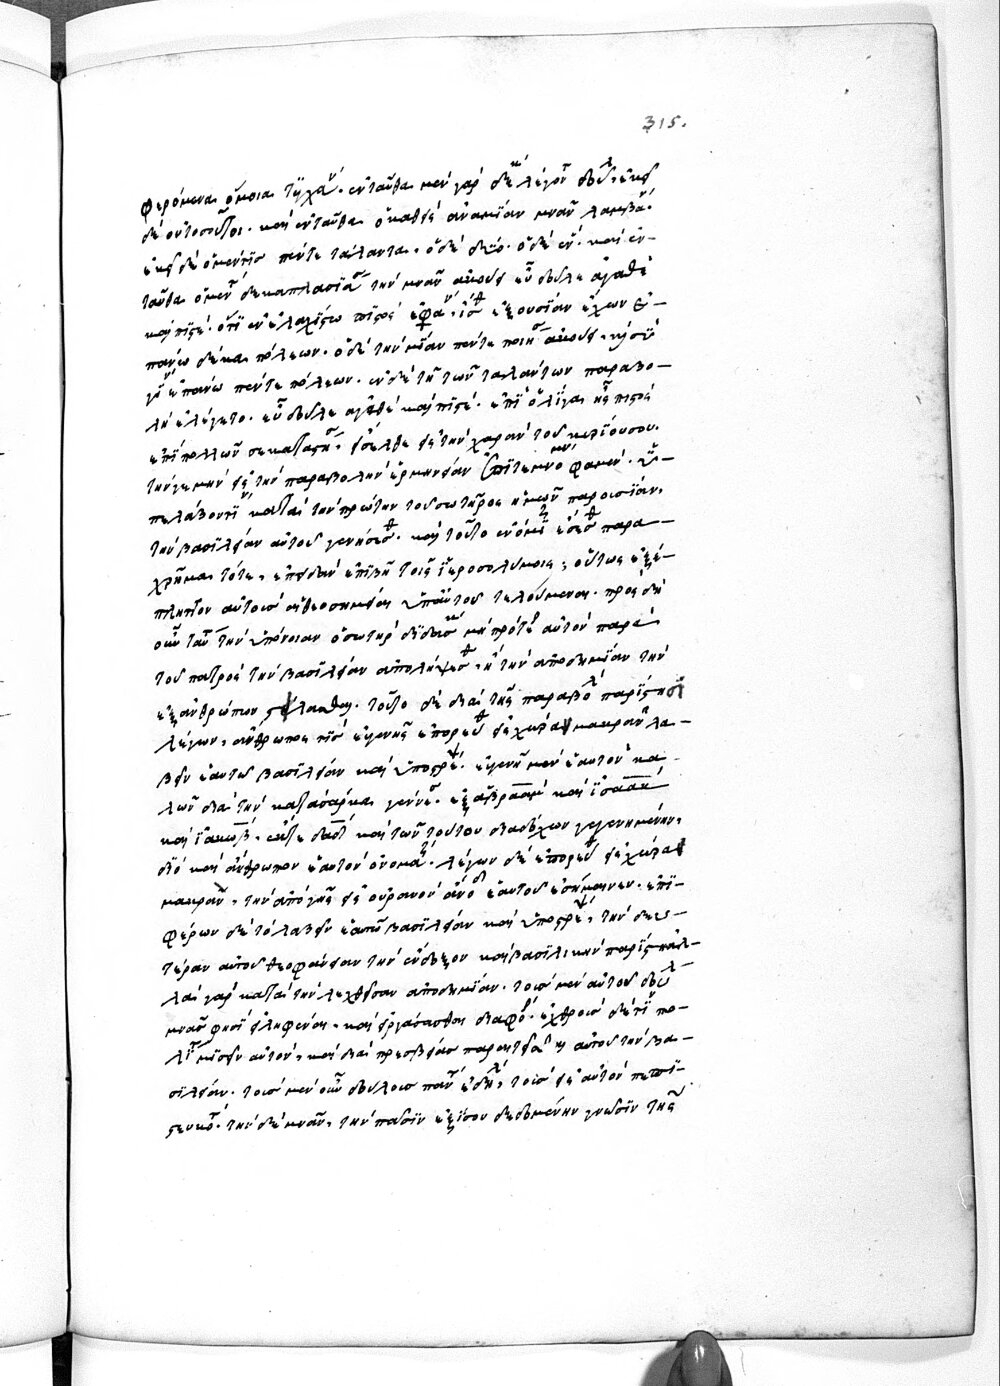 315.
φερόμενα ὅμοια τυχαν. ἐνταῦθα μὲν γὰρ δεκ λέγον δουλ, ἐκεῖ
δὲ οὑτοσοῦτοι. καὶ ἐνταῦθα ὁ καθεὶς ἀνα μίαν μνᾶν λαμβάν.
ἐκεῖ δὲ ὁ μέν τις πέντε τάλαντα. ὁ δὲ δύο. ὁ δὲ ἕν. καὶ ἐν-
ταῦθα ὁ μὲν δεκαπλασιά τὴν μνᾶν ἀκούει εὖ δοῦλε ἀγαθὲ
καὶ πιστέ. ὅτι ἐν ἐλαχίστω πιστὸς ἐφάν, ἴσθ ἐξουσίαν ἔχων ἐ-
πάνω δέκα πόλεων. ὁ δὲ τὴν μίαν πέντε ποιήσ ἀκούει. κ σὺ
γί ἐπάνω πέντε πόλεων. ἐν δὲ τῆ τῶν ταλάντων παραβο-
λῆ ἐλέγετο. εὖ δοῦλε ἀγαθὲ καὶ πιστέ. ἐπὶ ὀλίγα ἦς πιστὸς
ἐπὶ πολλῶν σε καταστήσ, εἴσελθε εἰς τὴν χαρὰν τοῦ κυρίου σου.
τὴν γε μὴν εἰς τὴν παραβολὴν ἑρμηνείαν ἐπιτεμνο φαμὲν. ὑ-
πελάβοντ κατὰ τὴν πρώτην τοῦ σωτῆρος ἡμῶν παρουσίαν,
τὴν βασιλείαν αὐτοῦ γενήσεσθ. καὶ τοῦτο ἐνόμιζ ἔσεσθ παρα-
χρῆμα τότε, ἐπειδὰν ἐπιβῆ τοῖς ἱεροσολύμοις, οὕτως ἐξέ-
πληττον αὐτοὺς αἱ θεοσημεῖαι ὑπ' αὐτοῦ τελούμεναι. πρὸς δὴ
οὖν ταύτην τὴν ὑπόνοιαν ὁ σωτὴρ διδάσκ μὴ πρότε αὐτὸν παρὰ
τοῦ πατρὸς τὴν βασιλείαν ἀπολήψεσθ, ἢ τὴν ἀποδημίαν τὴν
ἐξ ἀνθρώπων στείλασθαι. τοῦτο δὲ διὰ τῆς παραβολ παρίστησι
λέγων, ἄνθρωπός τις εὐγενὴς ἐπορεύθ εἰς χώραν μακρὰν λα-
βεῖν ἑαυτῶ βασιλείαν καὶ ὑποστρέψ. εὐγενῆ μὲν ἑαυτὸν κα-
λῶν διὰ τὴν κατὰ σάρκα γέννησ. ἐξ ἀβραὰμ καὶ ἰσαὰκ
καὶ ἰακώβ. ἔκ τε δαδ καὶ τῶν τούτου διαδόχων γεγενημένην,
διὸ καὶ ἄνθρωπον ἑαυτὸν ὀνομάζ. λέγων δὲ ἐπορεύθ εἰς χώραν
μακρὰν, τὴν ἀπὸ γῆς εἰς οὐρανὸν ἄνοδ ἑαυτοῦ ἐσήμαινεν. ἐπι-
φέρων δὲ τὸ λαβεῖν ἑαυτῶ βασιλείαν καὶ ὑποστρέψ, τὴν δευ-
τέραν αὐτοῦ θεοφάνειαν τὴν ἔνδοξον καὶ βασιλικὴν παρίστησιν
λαι γὰρ κατὰ τὴν λεχθεῖσαν ἀποδημίαν. τοὺς μὲν αὐτοῦ δούλ
μνᾶν φησὶ εἰληφέναι, καὶ ἐργάσασθαι διαφό. ἐχθροὺς δέ τιν πο-
λίτ μισεῖν αὐτὸν, καὶ διὰ πρεσβείας παραιτεῖσ αὐτοῦ τὴν βα-
σιλείαν. τοὺς μὲν οὖν δούλους παντ ἐδήλ, τοὺς εἰς αὐτὸν πεπι-
στευκό. τὴν δὲ μνᾶν, τὴν πᾶσιν ἐξίσου δεδομένην γνῶσιν τῆς